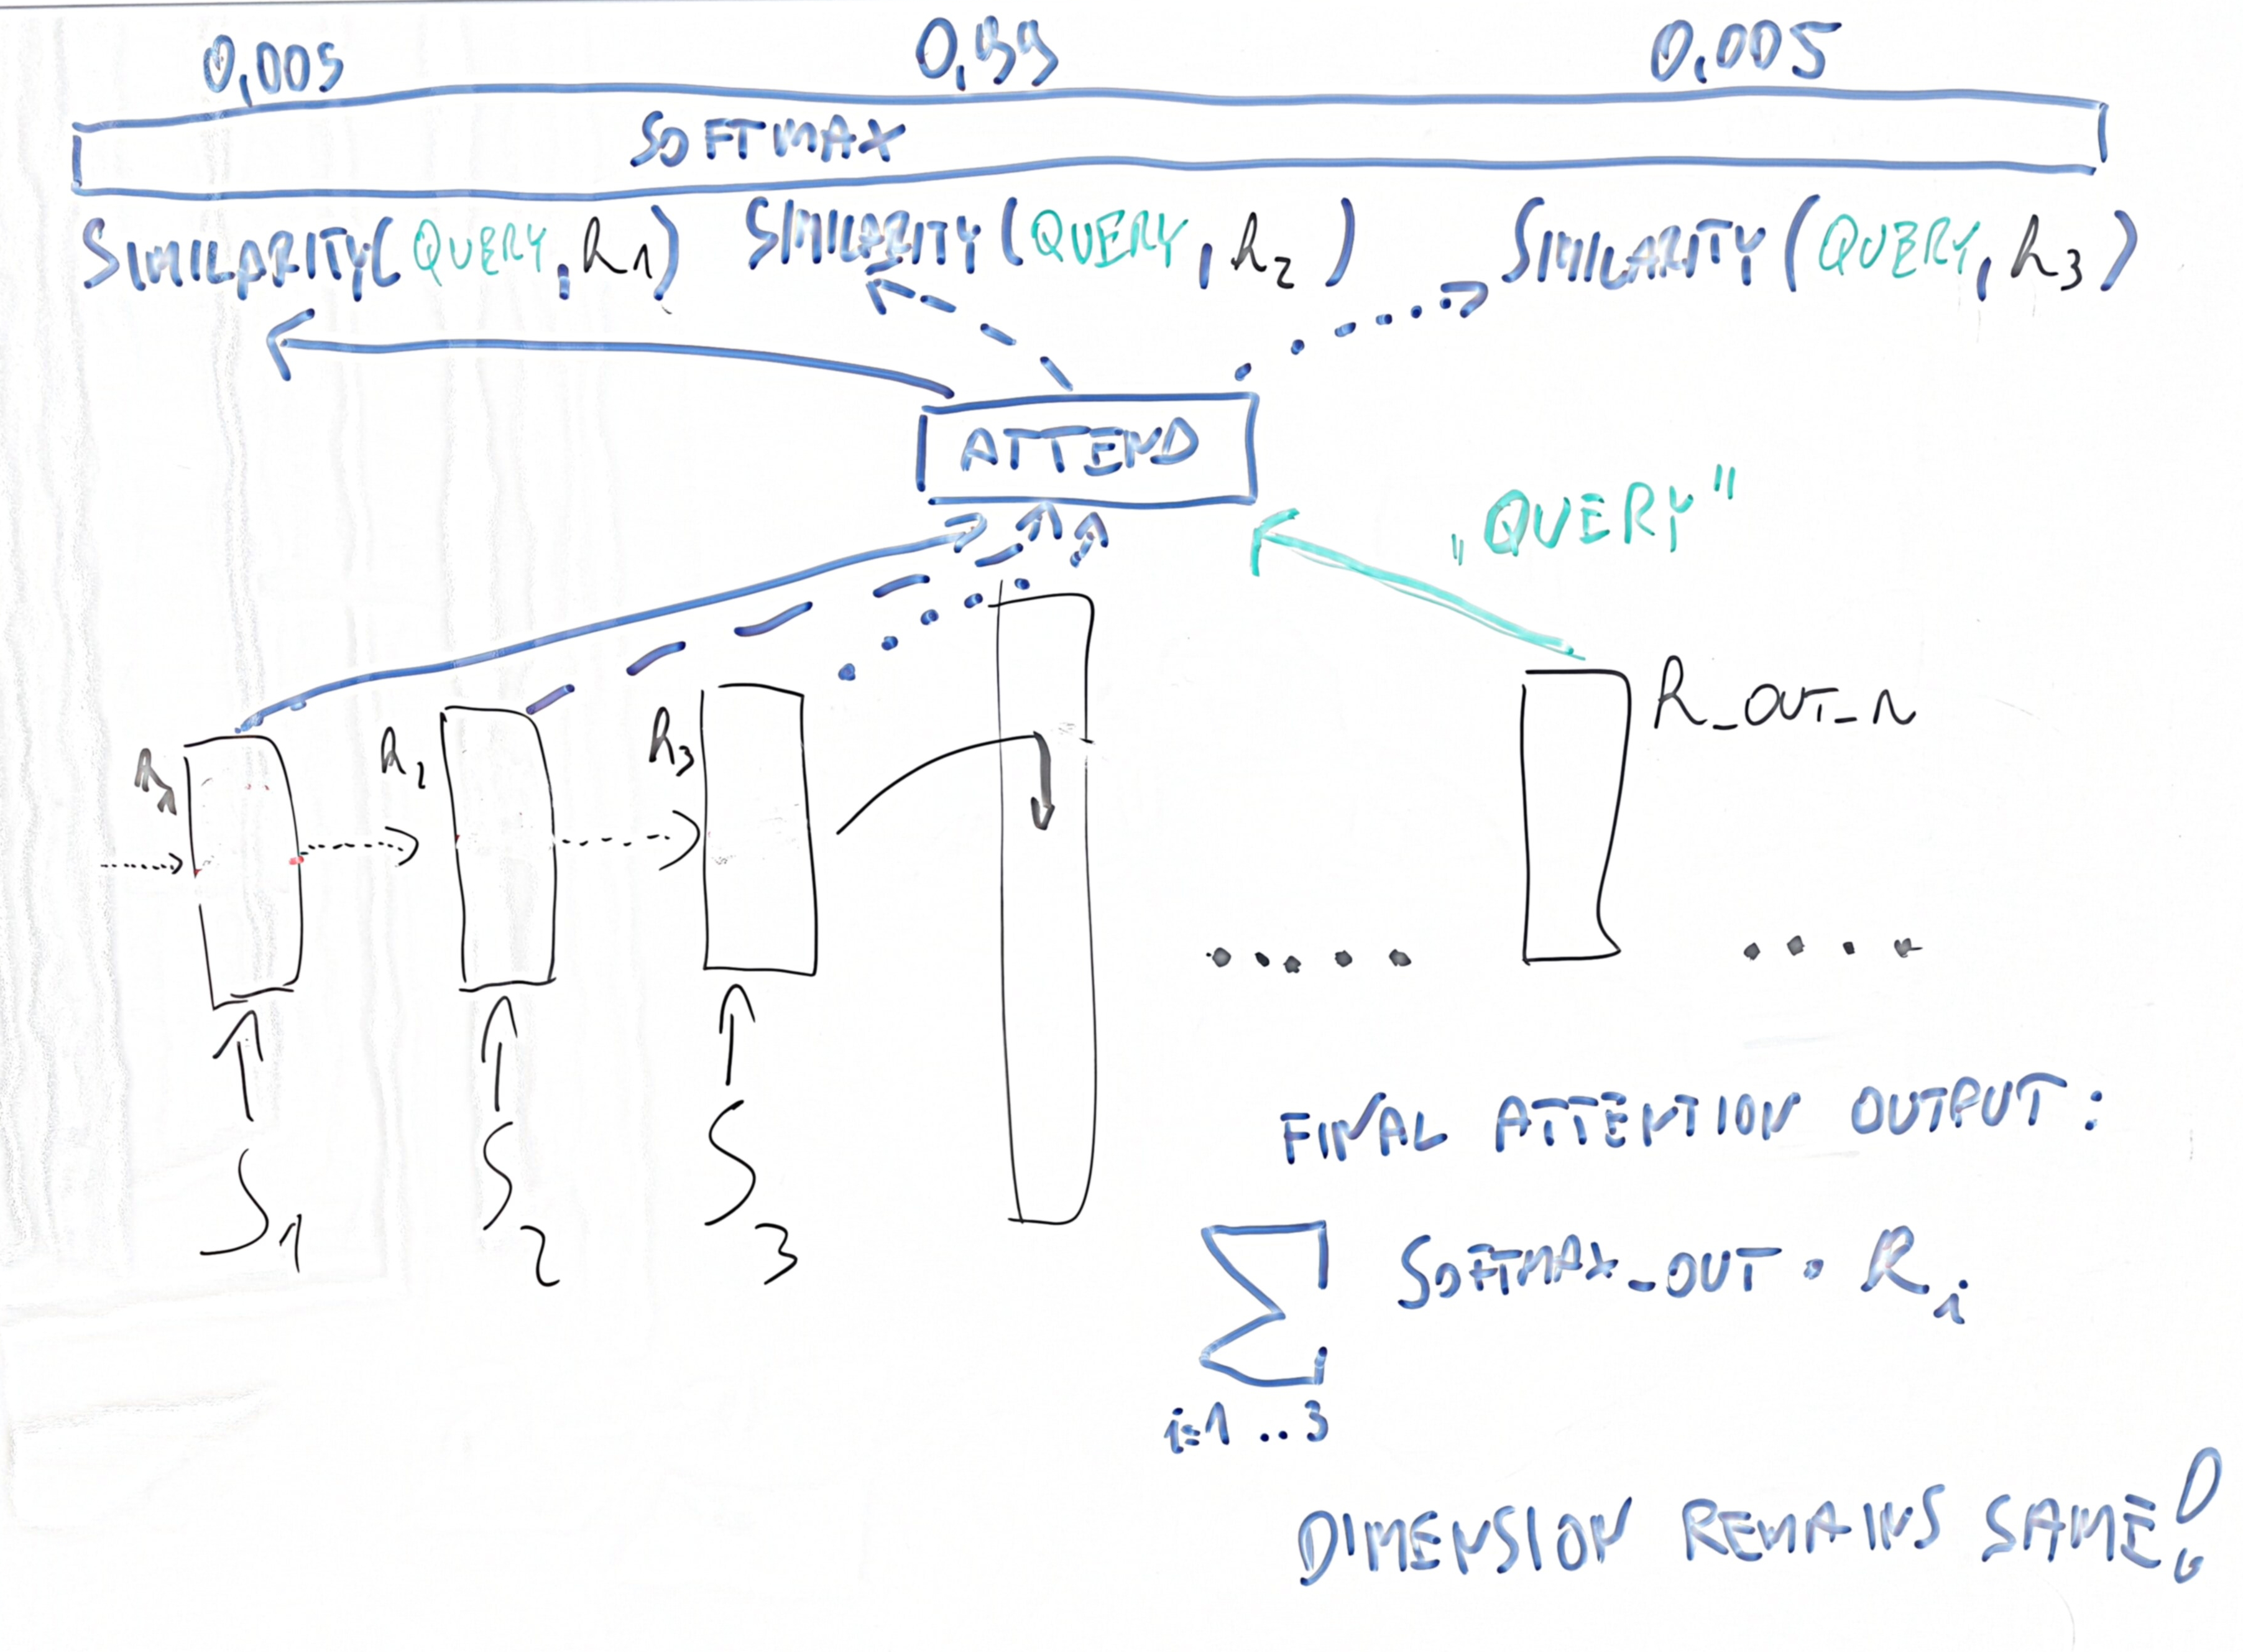 0,005 0,99 0,005
SOFTMAX
SIMILARITY(QUERY, R1) SIMILARITY(QUERY, R2) SIMILARITY(QUERY, R3)
ATTEND
„QUERY"
R1 R2 R3 R_OUT_N
S1 S2 S3
FINAL ATTENTION OUTPUT:
∑ SOFTMAX_OUT · Ri
i=1..3
DIMENSION REMAINS SAME!